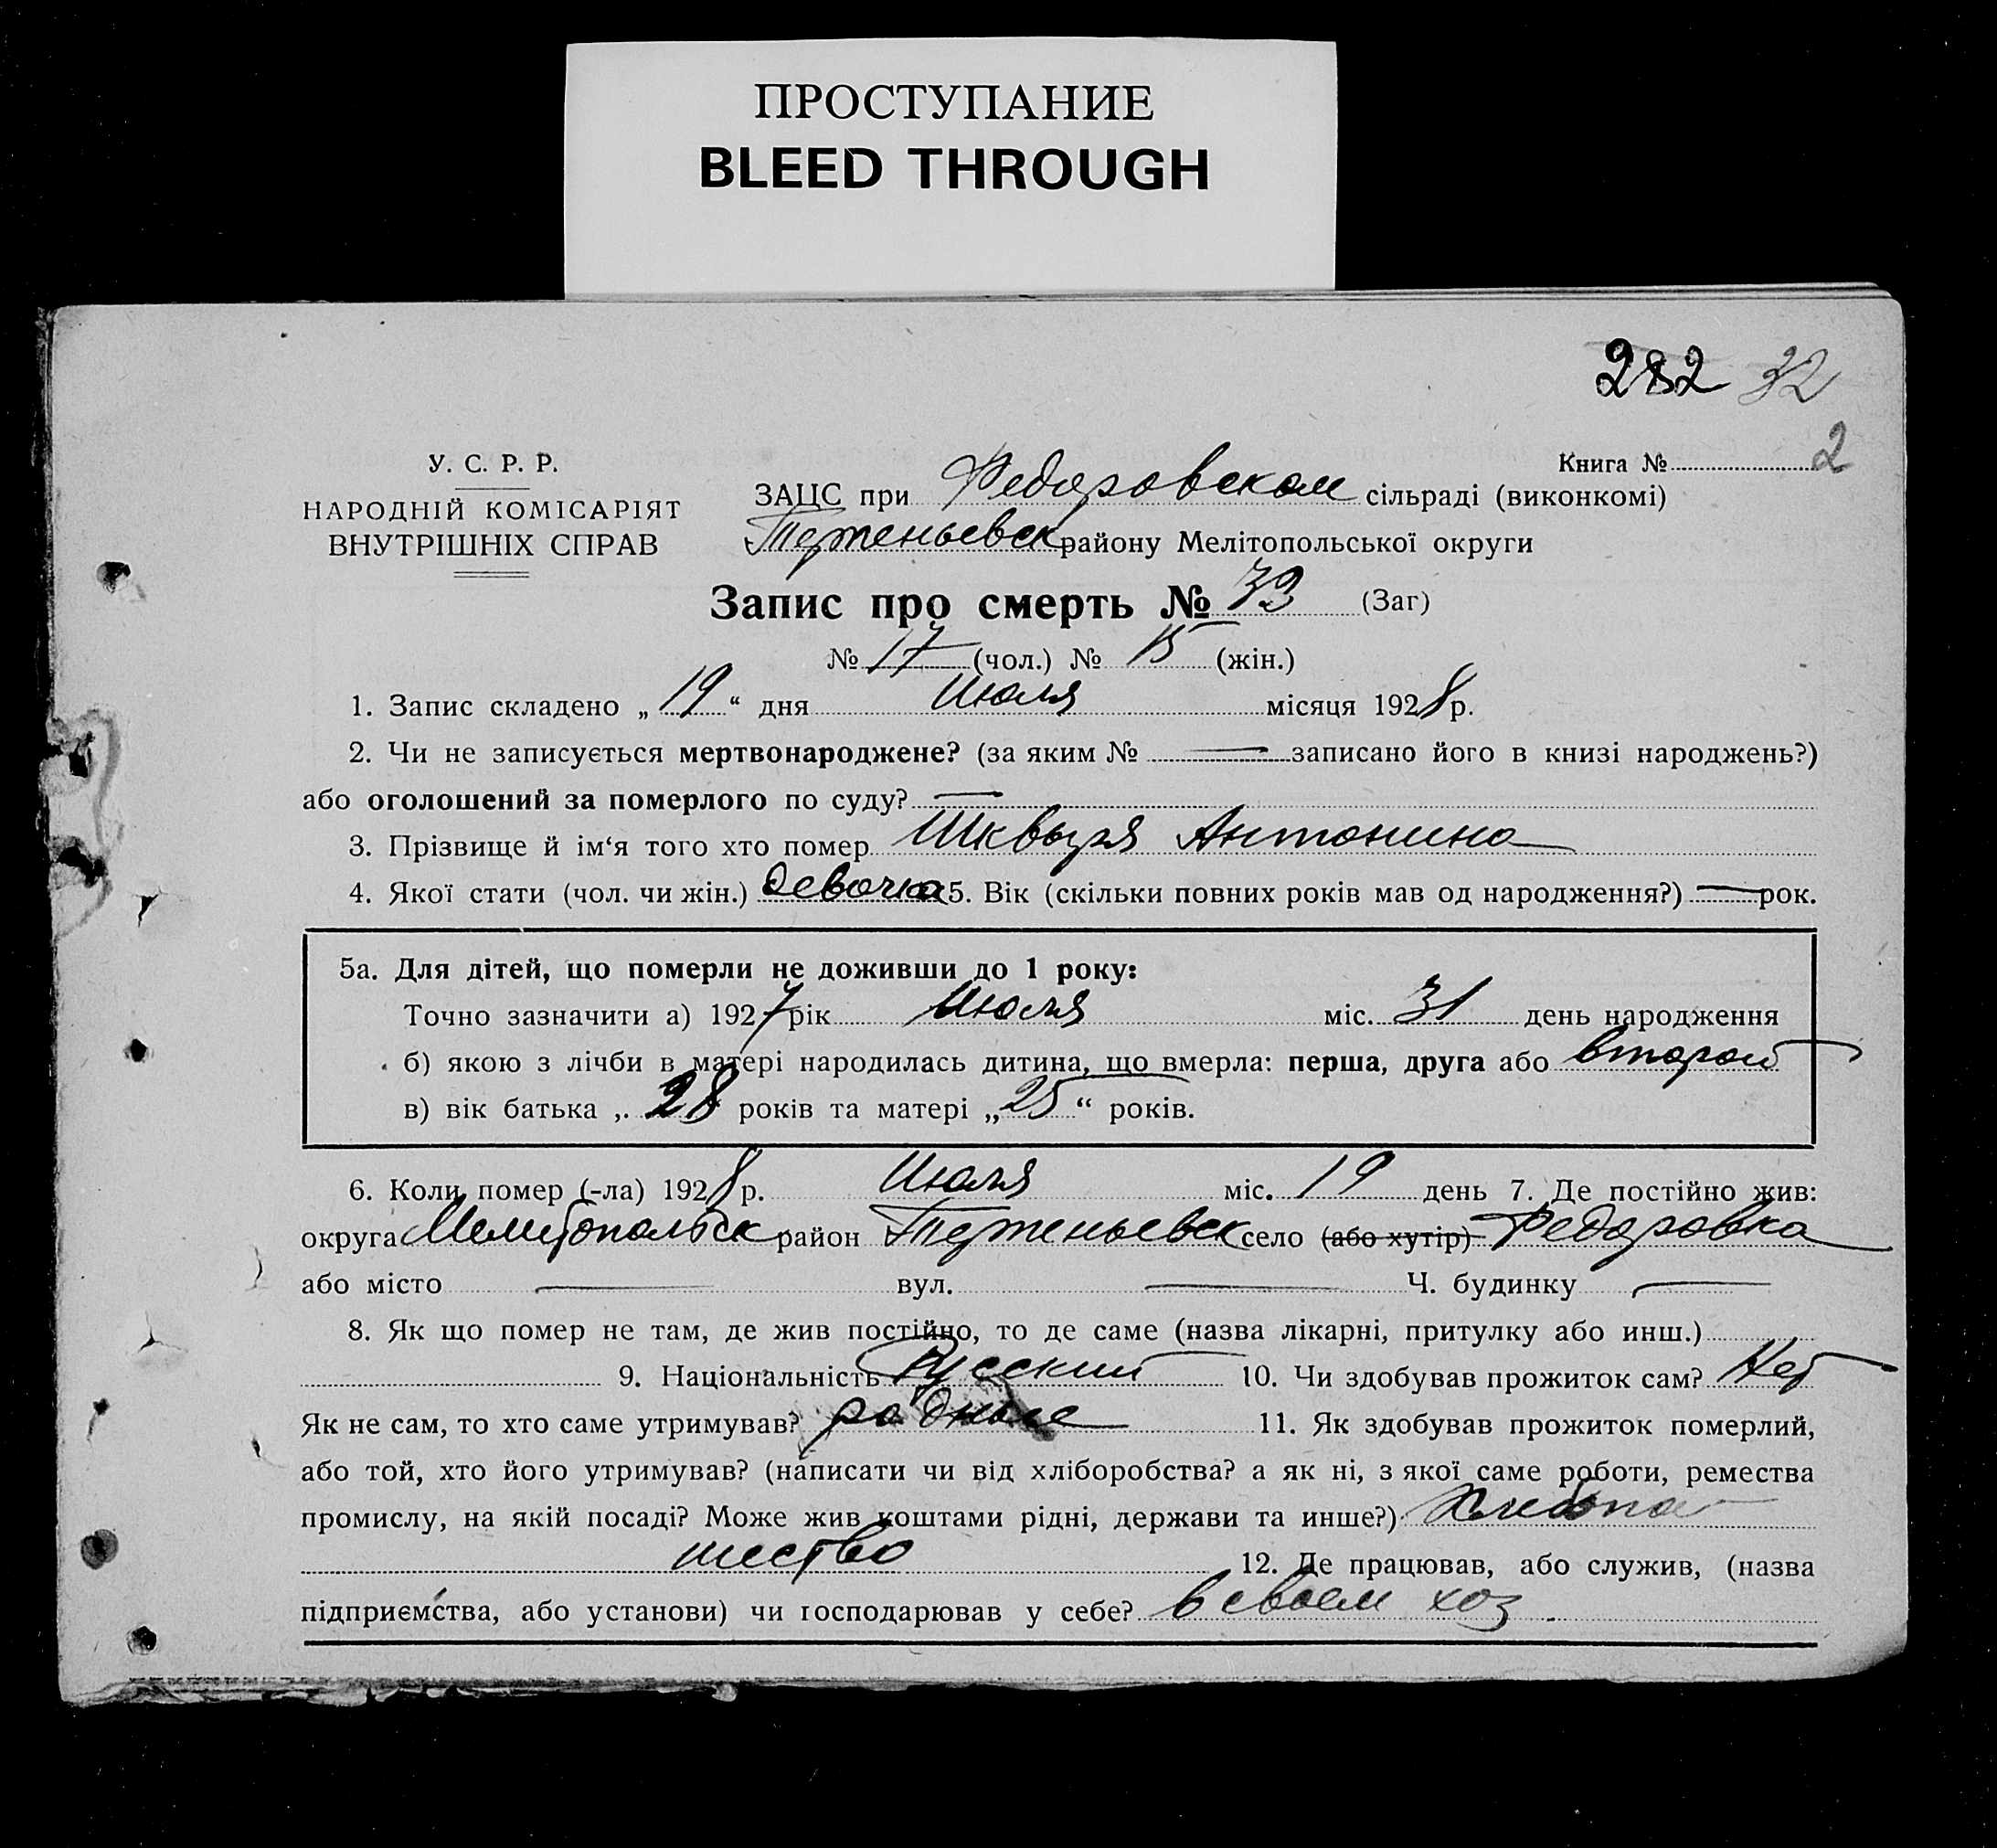 ПРОСТУПАНИЕ
BLEED THROUGH
282 32
У. С. Р. Р.
НАРОДНІЙ КОМІСАРІЯТ
ВНУТРІШНІХ СПРАВ
Книга № 2
ЗАЦС при Федоровском сільраді (виконкомі)
Терпеньевск району Мелітопольської округи
Запис про смерть № (Заг)
№ 17 (чол.) № 15 (жін.)
1. Запис складено „ 19 “ дня Июля місяця 1928 р.
2. Чи не записується мертвонароджене? (за яким № — записано його в книзі народжень?)
або оголошений за померлого по суду? —
3. Прізвище й ім‘я того хто помер Шквыря Антонина
4. Якої стати (чол. чи жін.) девочка 5. Вік (скільки повних років мав од народження?) — рок.
5а. Для дітей, що померли не доживши до 1 року:
Точно зазначити а) 1927 рік Июля міс. 31 день народження
б) якою з лічби в матері народилась дитина, що вмерла: перша, друга або второй
в) вік батька „ 28 років та матері „ 25 “ років.
6. Коли помер (-ла) 1928 р. Июля міс. 19 день 7. Де постійно жив:
округа Мелитопольск район Терпеньевск село (або хутір) Федоровка
або місто — вул. — Ч. будинку —
8. Як що помер не там, де жив постійно, то де саме (назва лікарні, притулку або инш.)
9. Національність Русский 10. Чи здобував прожиток сам? Нет
Як не сам, то хто саме утримував? родные 11. Як здобував прожиток померлий,
або той, хто його утримував? (написати чи від хліборобства? а як ні, з якої саме роботи, ремества
промислу, на якій посаді? Може жив коштами рідні, держави та инше?) Хлебопа
шество 12. Де працював, або служив, (назва
підприємства, або установи) чи господарював у себе? в своем хоз.